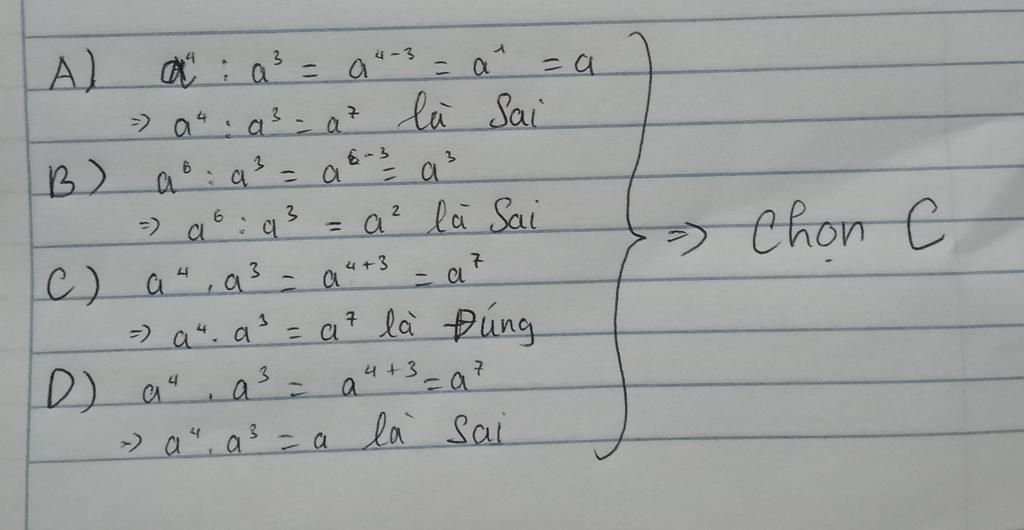 A) a⁴ : a³ = a⁴⁻³ = a¹ = a
=> a⁴ : a³ = a⁷ là Sai
B) a⁶ : a³ = a⁶⁻³ = a³
=> a⁶ : a³ = a² là Sai
C) a⁴ . a³ = a⁴⁺³ = a⁷
=> a⁴ . a³ = a⁷ là Đúng
D) a⁴ . a³ = a⁴⁺³ = a⁷
=> a⁴ . a³ = a là Sai
=> Chọn C